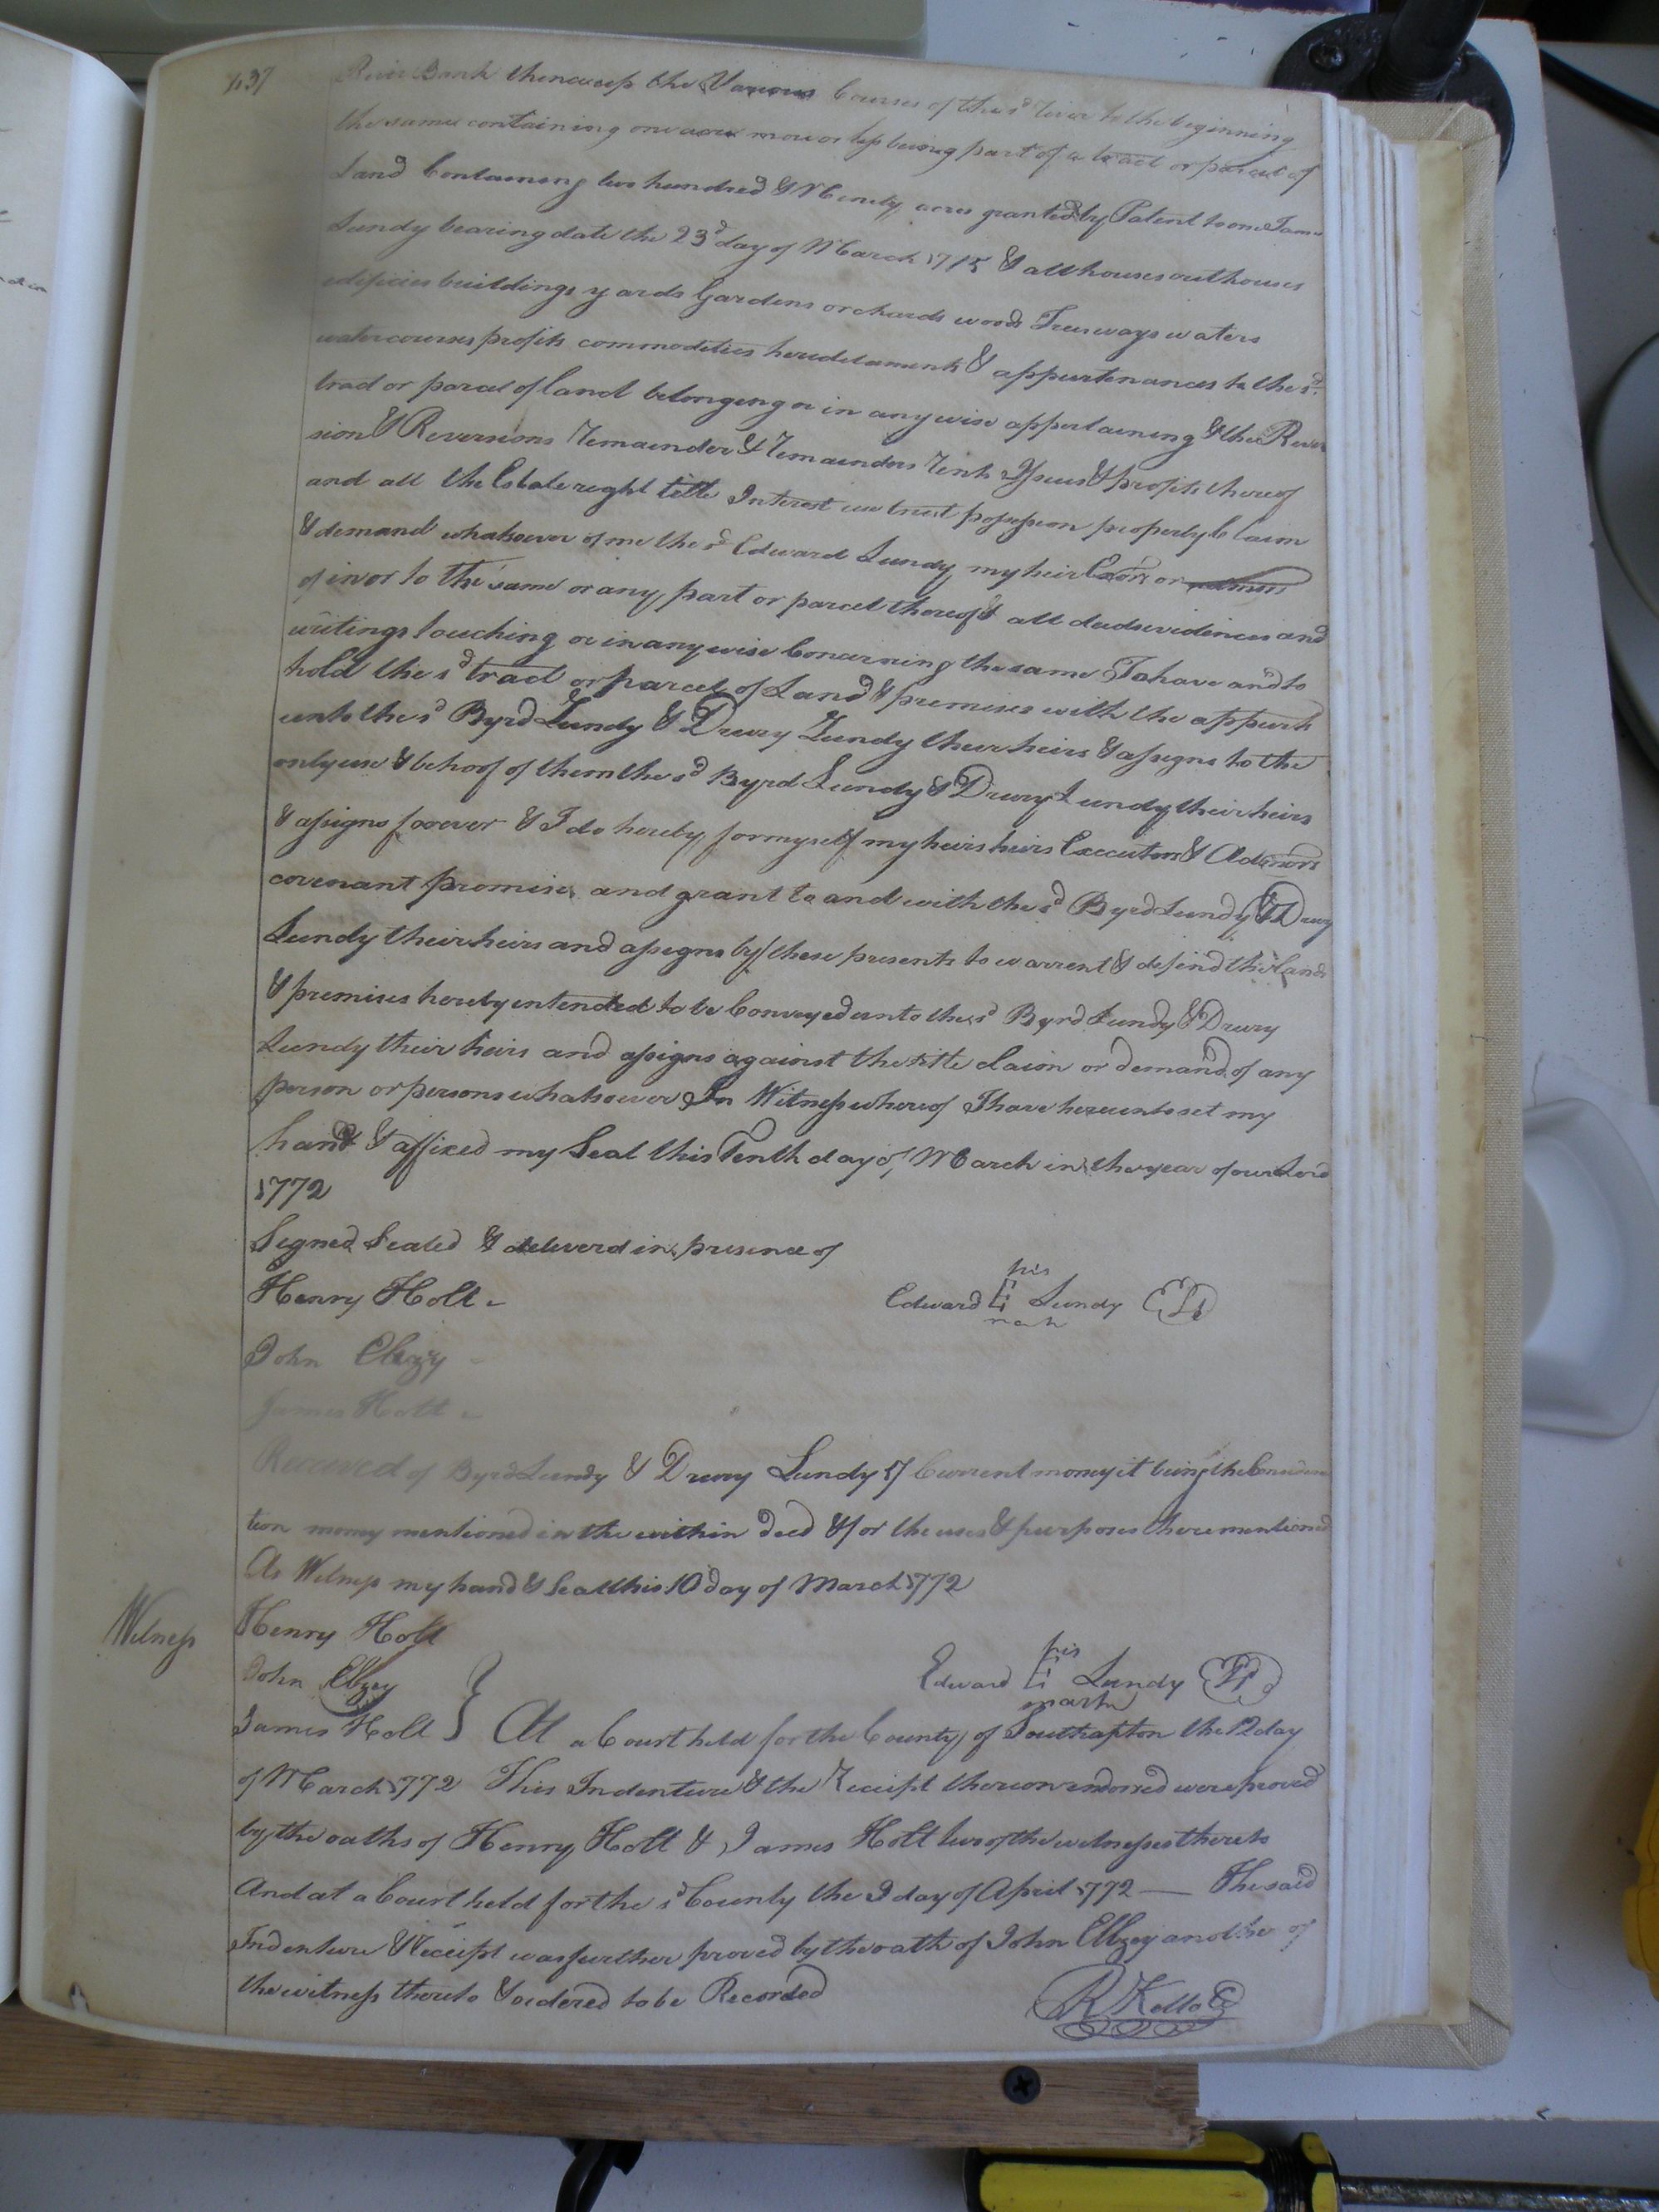 437
River Bank thence up the Various Courses of the sd River to the beginning
the same containing one acre more or less being part of a tract or parcel of
Land Containing two hundred & Ninety acres granted by Patent to one James
Lundy bearing date the 23d day of March 1715 & all houses outhouses
edificies buildings yards Gardens orchards woods Trees ways waters
watercourses profits commodities heridetaments & appurtenances to the sd
tract or parcel of land belonging or in any wise appertaining & the Rever
sion & Reversions Remainder & Remainders Rents Issues & profits thereof
and all the Estate right title Interest use trust possession property Claim
& demand whatsoever of me the sd Edward Lundy my heir Exors or admrs
of in or to the same or any part or parcel thereof & all deeds evidences and
writings touching or in any wise Concerning the same To have and to
hold the sd tract or parcel of Land & premises with the appurts
unto the sd Byrd Lundy & Drury Lundy their heirs & assigns to the
only use & behoof of them the sd Byrd Lundy & Drury Lundy their heirs
& assigns forever & I do hereby for myself my heirs heirs Executors & Admors
covenant promise and grant to and with the sd Byrd Lundy & Drury
Lundy their heirs and assigns by these presents to warrent & defend the sd land
& premises hereby intended to be Conveyed unto the sd Byrd Lundy & Drury
Lundy their heirs and assigns against the title claim or demand of any
person or persons whatsoever In Witness whereof I have hereunto set my
hand & affixed my Seal this Tenth day of March in the year of our Lord
1772
Signed Sealed & deleverd in presence of
Henry Holt
his
Edward E Lundy LS
mark
John Ellzey
James Holt
Received of Byrd Lundy & Drury Lundy £7 Current money it being the Considera
tion money mentioned in the within deed & for the uses & purposes there mentioned
As Witness my hand & Seal this 10 day of March 1772
Witness
Henry Holt
John Ellzey
his
Edward E Lundy LS
mark
James Holt } At a Court held for the County of Southapton the 12 day
of March 1772 This Indenture & the Receipt thereon endorsed were proved
by the oaths of Henry Holt & James Holt two of the witnesses thereto
And at a Court held for the sd County the 9 day of April 1772 — The said
Indenture & Receipt was further proved by the oath of John Ellzey another of
the witness thereto & ordered to be Recorded
R Kello C